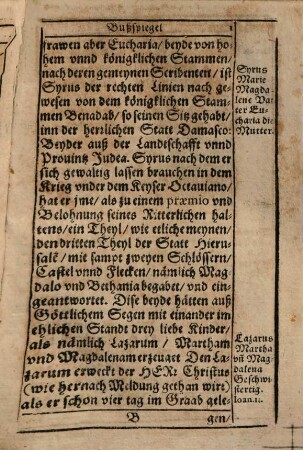 Bußspiegel
1
frawen aber Eucharia/ beyde von ho-
hem vnnd königklichen Stammen/
nach deren gemeynen Scribenten/ ist
Syrus der rechten Linien nach ge-
wesen von dem königklichen Stam-
men Benadab/ so seinen Sitz gehabt/
inn der herrlichen Statt Damasco:
Beyder auß der Landtschafft vnnd
Prouintz Judea. Syrus nach dem er
sich gewaltig lassen brauchen in dem
Krieg vnder dem Keyser Octauiano/
hat er jme/ als zu einem præmio vnd
Belohnung seines Ritterlichen hal-
tens/ ein Theyl/ wie ettliche meynen/
den dritten Theyl der Statt Hieru-
salē/ mit sampt zweyen Schlössern/
Castel vnnd Flecken/ nämlich Mag-
dalo vnd Bethania begabet/ vnd ein-
geantwortet. Dise beyde hätten auß
Göttlichem Segen mit einander im
ehlichen Standt drey liebe Kinder/
als nämlich Lazarum/ Martham
vnd Magdalenam erzeuget Den La-
zarum erweckt der HErr Christus
(wie hernach Meldung gethan wirt)
als er schon vier tag im Graab gele-
B
gen/
Syrus
Marie
Magda-
lene Vat-
ter Eu-
charia die
Mutter.
Lazarus
Martha
vñ Mag-
dalena
Geschwi-
stertig.
Ioan.11.